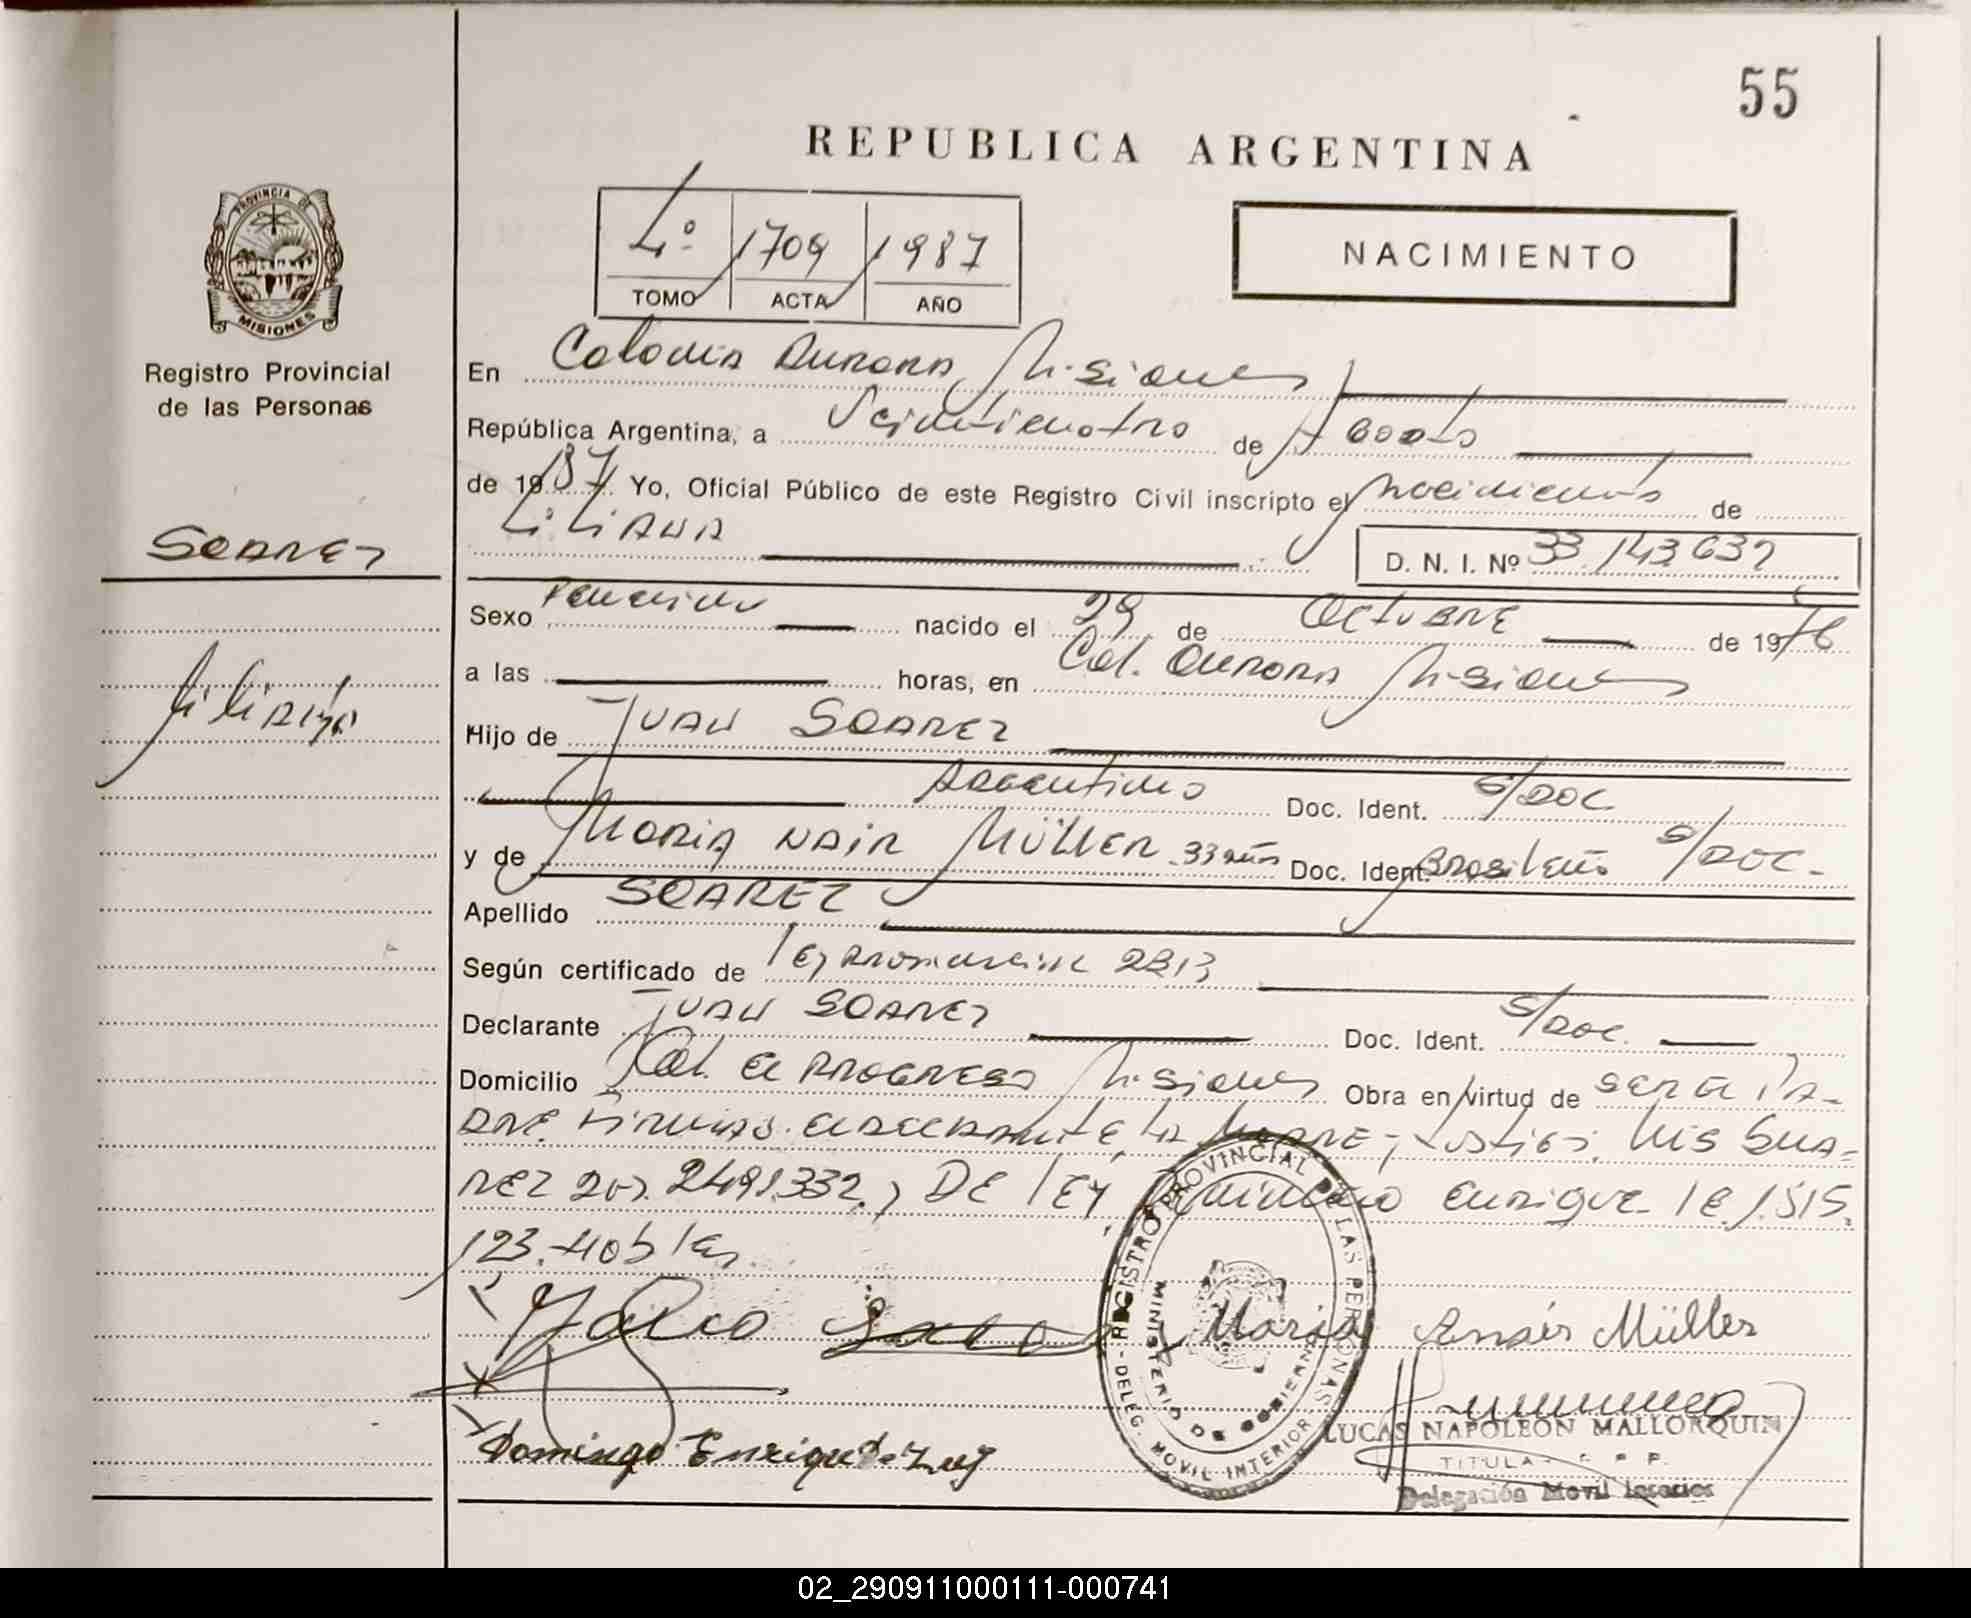 55
REPUBLICA ARGENTINA
PROVINCIA DE
MISIONES
Registro Provincial
de las Personas
4º 1709 1987
TOMO ACTA AÑO
NACIMIENTO
En Colonia Aurora, Misiones
República Argentina, a Veinticuatro de Agosto
de 1987 Yo, Oficial Público de este Registro Civil inscripto el nacimiento de
Liliana
D. N. I. Nº 33.143.632
SOAREZ
Liliana
Sexo Femenino nacido el 29 de OCTUBRE de 1976
a las horas, en Col. Aurora Misiones
Hijo de JUAN SOAREZ
Argentino Doc. Ident. S/DOC
y de MARIA NAIR MÜLLER 33 años Doc. Ident. Brasileña S/DOC.
Apellido SOAREZ
Según certificado de Ley 2813
Declarante JUAN SOAREZ Doc. Ident. S/DOC.
Domicilio Col. El PROGRESO Misiones Obra en virtud de SER El PA-
DRE. Firman. el declarante, la Madre, testigos. Luis SUA-
REZ DNI. 2491.332, DE LEY, Enrique LE 1.515.
123.
Maria Müller
Domingo Enrique
REGISTRO PROVINCIAL DE LAS PERSONAS
MINISTERIO DE GOBIERNO
- DELEG. MOVIL INTERIOR
LUCAS NAPOLEON MALLORQUIN
TITULAR
Delegación Movil
02_290911000111-000741